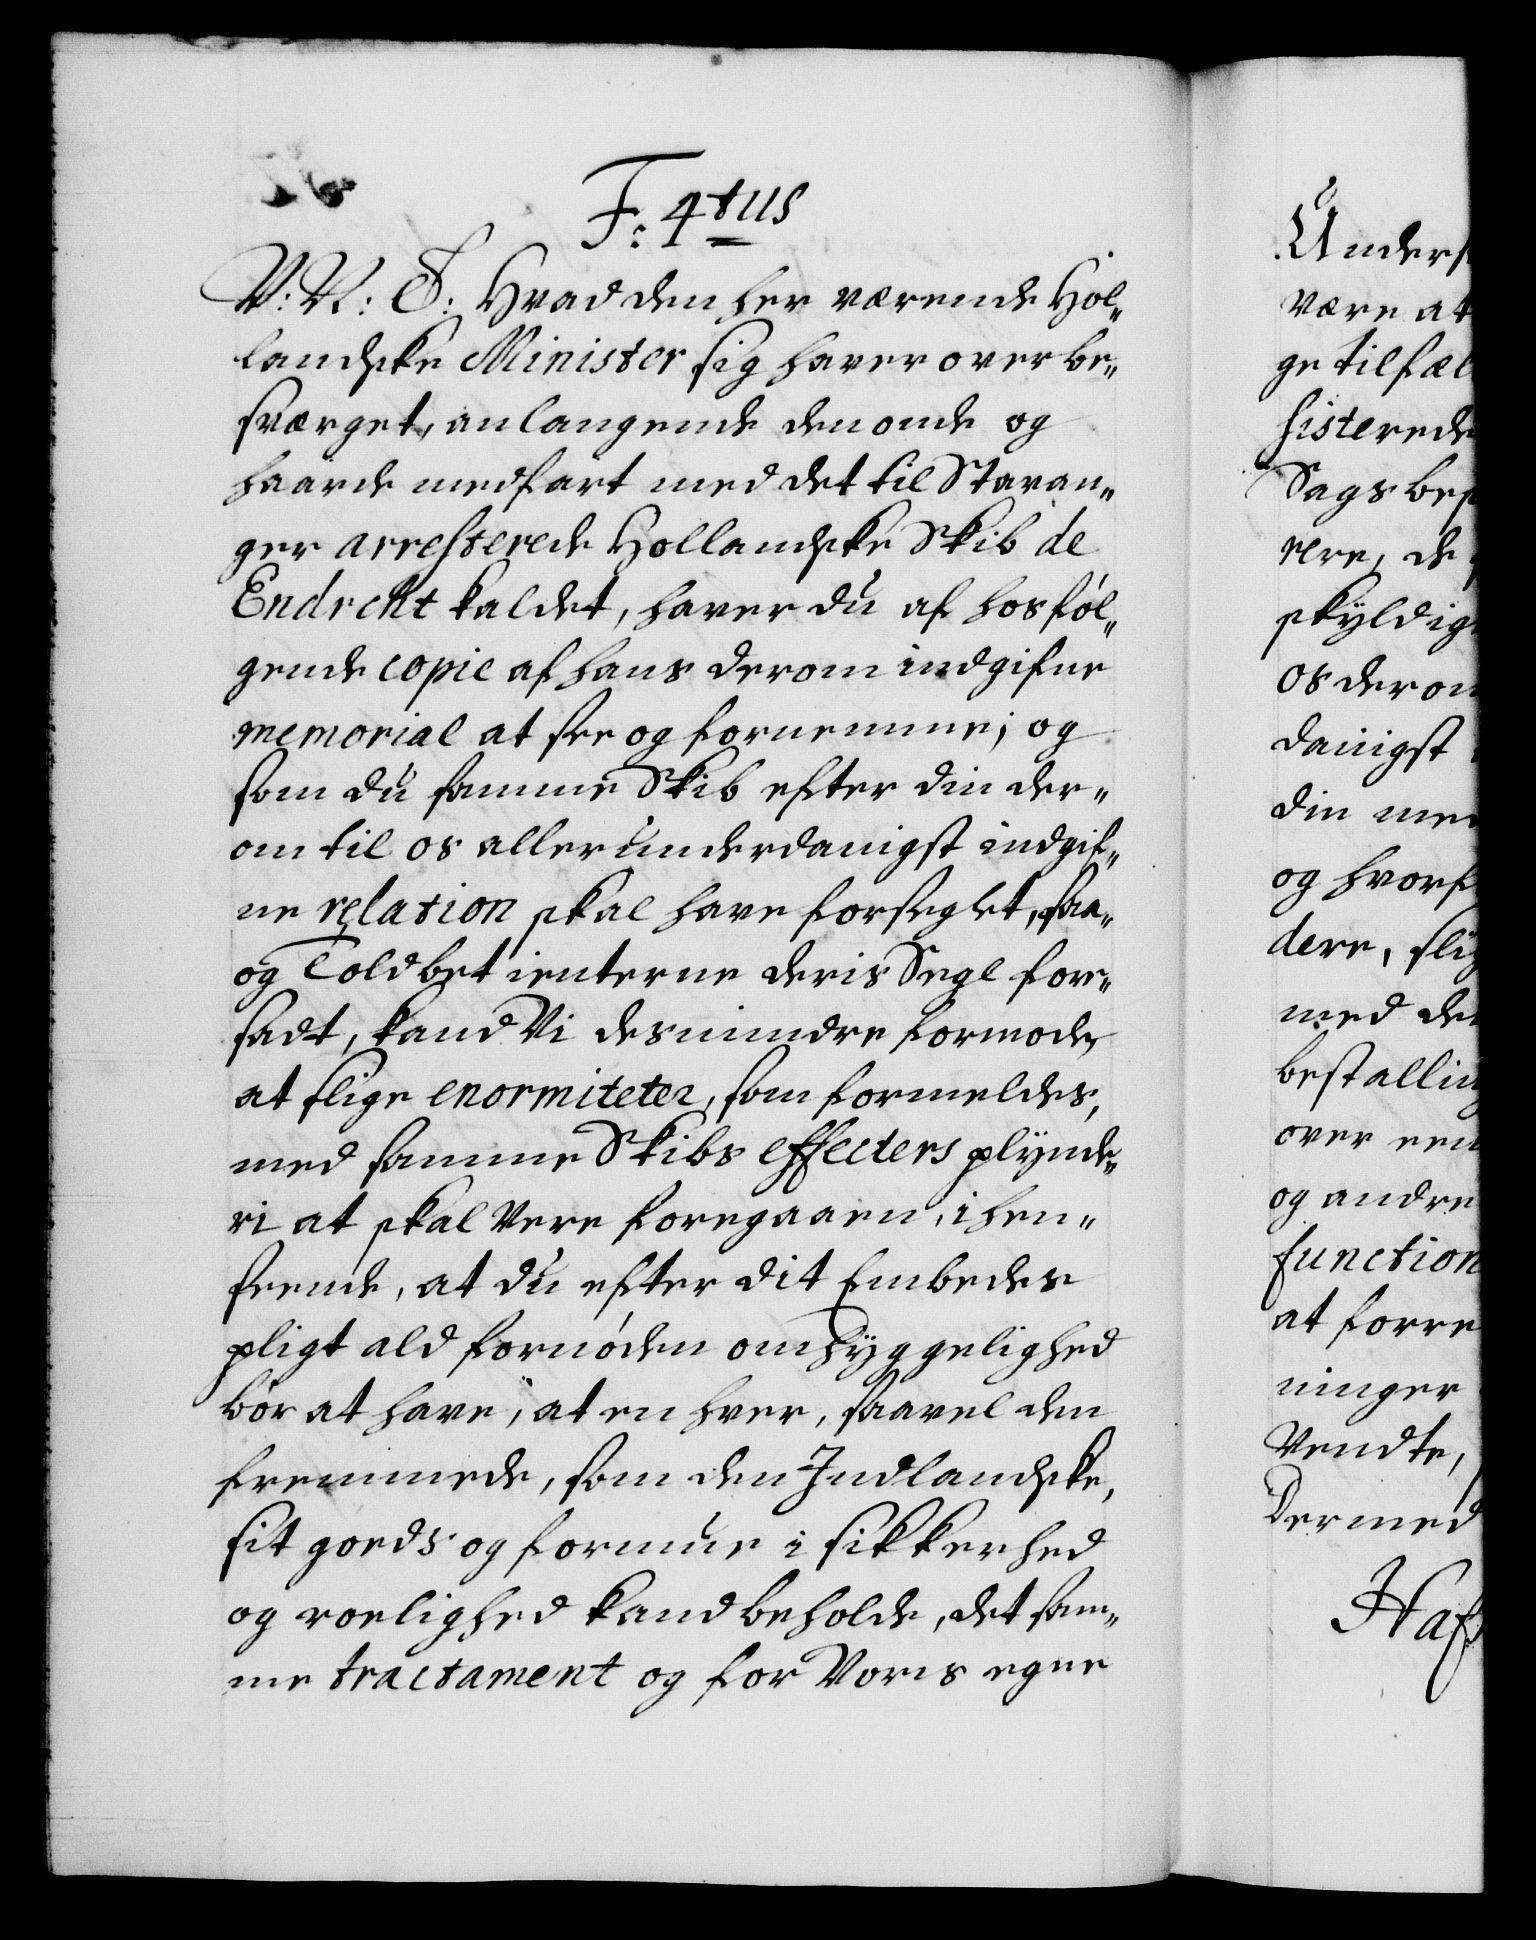 F: 4tus
V: N: T: Hvad den her værende Hol„
landske Minister sig haver over be„
sværget, anlangende den onde og
haarde medfart med det til Stavan„
ger arresterede Hollandske Skib de
Endrcht kaldet, haver du af hosføl„
gende copie af hans derom indgifne
memorial at see og fornemme; og
som du samme Skib efter din der„
om til os allerunderdanigst indgif„
ne relation skal have forseglet, saa„
og Toldbetienterne deris Segl for„
sadt, kand Vi desmindre formode,
at slige enormiteter, som formeldes,
med samme Skibs effecters plynde„
ri at skal vere foregaaen, i hen„
seende, at du efter dit Embedes
pligt ald fornøden omhyggelighed
bør at have, at en hver, saavel den
fremmede, som den Indlandske,
sit goeds og formue i sikkerhed
og roelighed kand beholde, det sam„
me tractament og for Voris egne
Unders
være at
ge tilfæl
sisterede
Sags bes
rere, de
skyldig
os derom
danigst
din me
og hvorf
dere, slig
med de
bestalling
over een
og andre
function
at forre
ninger
Vendte,
Dermed
Haf